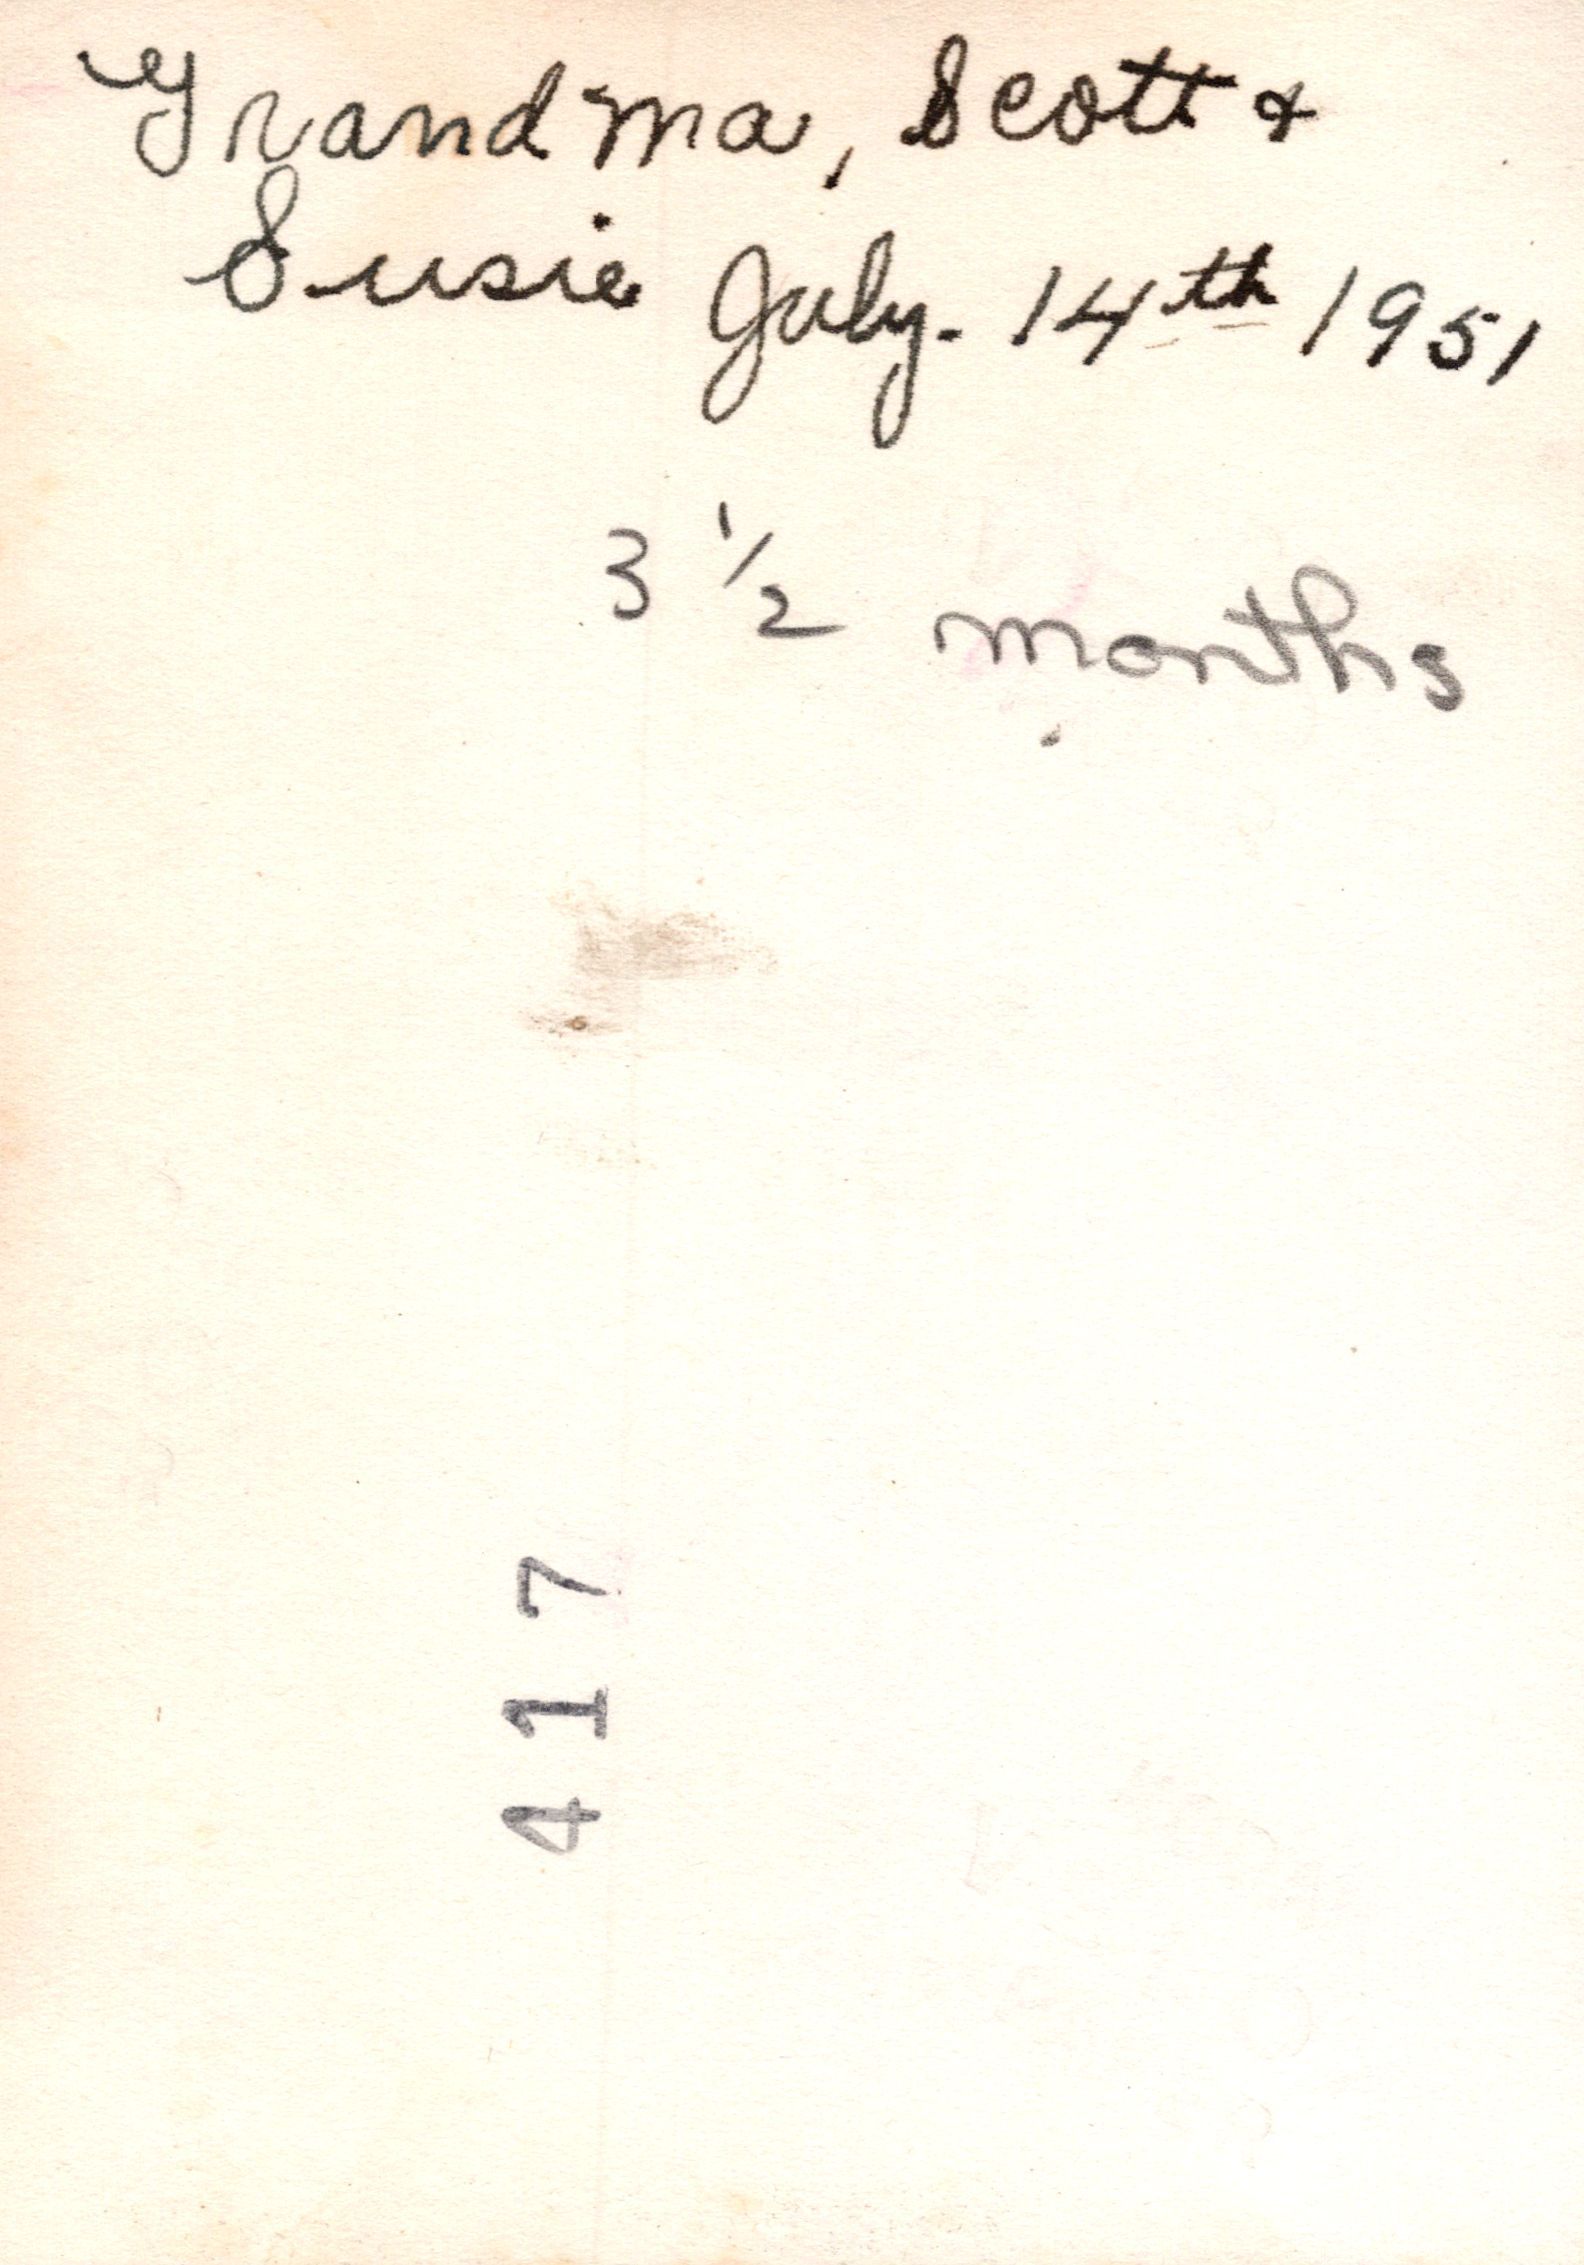 Grandma, Scott &
Susie July. 14th 1951
3 1/2 months
417